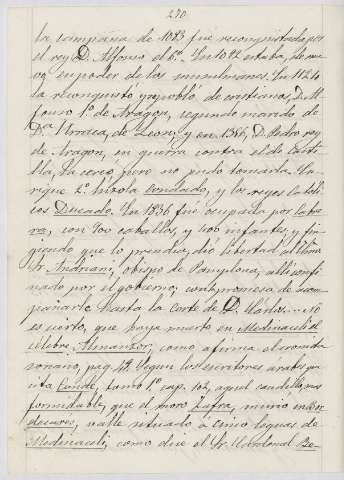 270
la campaña de 1083 fué reconquistada por
el rey D. Alfonso el 6º. En 1092 estaba, de nue
vo, en poder de los musulmanes. En 1120
la reconquistó y repobló de cristianos, D. Al
fonso 1º de Aragon, segundo marido de
Dª Urraca, de Leon; y en 1366, D. Pedro rey
de Aragon, en guerra contra el de Casti
lla, la cercó pero no pudo tomarla. En
rique 2º hízola condado, y los reyes Católi
cos Ducado. En 1836 fué ocupada por Cabre
ra, con 900 caballos, y 400 infantes, y fin
giendo que lo prendia, dió libertad al Ilmo
Sr Andriani, obispo de Pamplona, allí confi
nado por el gobierno, con promesa de acom
pañarle hasta la Corte de D. Carlos... No
es cierto, que haya muerto en Medinaceli el
célebre Almanzor, como afirma el cronista
soriano, pag. 19. Segun los escritores arabes que
cita Conde, tomo 1º cap. 102, aquel caudillo, mas
formidable, que el moro Zafra, murió en Bor
decorex, valle situado a cinco leguas de
Medinaceli, como dice el Sr. Cardenal Be